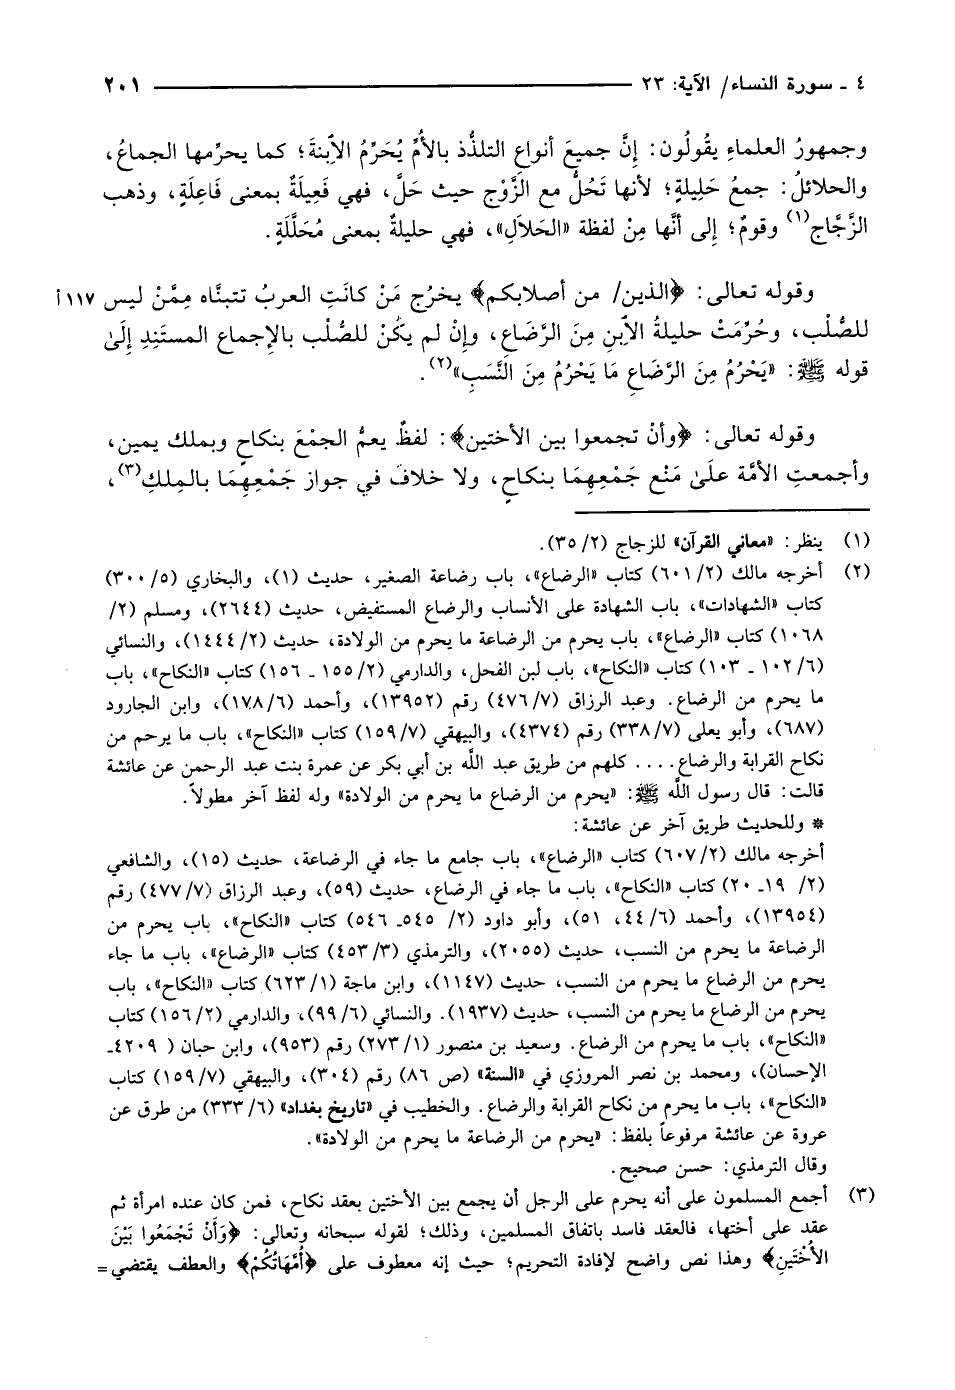 ٤ ـ سورة النساء/ الآية: ٢٣ ٢٠١
وجمهورُ العلماءِ يقُولُون: إِنَّ جميعَ أنواعِ التلذُّذ بالأُمِّ يُحَرِّمُ الاِبنةَ؛ كما يحرِّمها الجماعُ،
والحلائلُ: جمعُ حَلِيلةٍ؛ لأنها تَحُلُّ مع الزَّوْج حيث حَلَّ، فهي فَعِيلَةٌ بمعنى فَاعِلَةٍ، وذهب
الزَّجَّاج(١) وقومٌ؛ إلى أنَّها مِنْ لفظة «الحَلاَلِ»، فهي حليلةٌ بمعنى مُحَلَّلَةٍ.
وقوله تعالى: ﴿الذين/ من أصلابكم﴾ يخرُج مَنْ كانَتِ العربُ تتبنَّاه مِمَّنْ ليس ١١٧ أ
للصُّلْب، وحُرِّمَتْ حليلةُ الاِبْنِ مِنَ الرَّضَاعِ، وإِنْ لم يكُنْ للصُّلْب بالإِجماع المستَنِدِ إِلَىٰ
قوله ﷺ: «يَحْرُمُ مِنَ الرَّضَاعِ مَا يَحْرُمُ مِنَ النَّسَبِ»(٢).
وقوله تعالى: ﴿وأنْ تجمعوا بين الأختين﴾: لفظٌ يعمُّ الجمْعَ بنكاحٍ وبملك يمين،
وأجمعتِ الأمَّة علَىٰ مَنْع جَمْعِهِمَا بنكاحٍ، ولا خلافَ في جواز جَمْعِهِمَا بالمِلكِ(٣)،
(١) ينظر: «معاني القرآن» للزجاج (٢/ ٣٥).
(٢) أخرجه مالك (٢/ ٦٠١) كتاب «الرضاع»، باب رضاعة الصغير، حديث (١)، والبخاري (٥/ ٣٠٠)
كتاب «الشهادات»، باب الشهادة على الأنساب والرضاع المستفيض، حديث (٢٦٤٤)، ومسلم (٢/
١٠٦٨) كتاب «الرضاع»، باب يحرم من الرضاعة ما يحرم من الولادة، حديث (٢/ ١٤٤٤)، والنسائي
(٦/ ١٠٢ ـ ١٠٣) كتاب «النكاح»، باب لبن الفحل، والدارمي (٢/ ١٥٥ ـ ١٥٦) كتاب «النكاح»، باب
ما يحرم من الرضاع. وعبد الرزاق (٧/ ٤٧٦) رقم (١٣٩٥٢)، وأحمد (٦/ ١٧٨)، وابن الجارود
(٦٨٧)، وأبو يعلى (٧/ ٣٣٨) رقم (٤٣٧٤)، والبيهقي (٧/ ١٥٩) كتاب «النكاح»، باب ما يرحم من
نكاح القرابة والرضاع. . . . كلهم من طريق عبد اللَّه بن أبي بكر عن عمرة بنت عبد الرحمن عن عائشة
قالت: قال رسول اللَّه ﷺ: «يحرم من الرضاع ما يحرم من الولادة» وله لفظ آخر مطولاً.
* وللحديث طريق آخر عن عائشة:
أخرجه مالك (٢/ ٦٠٧) كتاب «الرضاع»، باب جامع ما جاء في الرضاعة، حديث (١٥)، والشافعي
(٢/ ١٩ـ ٢٠) كتاب «النكاح»، باب ما جاء في الرضاع، حديث (٥٩)، وعبد الرزاق (٧/ ٤٧٧) رقم
(١٣٩٥٤)، وأحمد (٦/ ٤٤، ٥١)، وأبو داود (٢/ ٥٤٥ـ ٥٤٦) كتاب «النكاح»، باب يحرم من
الرضاعة ما يحرم من النسب، حديث (٢٠٥٥)، والترمذي (٣/ ٤٥٣) كتاب «الرضاع»، باب ما جاء
يحرم من الرضاع ما يحرم من النسب، حديث (١١٤٧)، وابن ماجة (١/ ٦٢٣) كتاب «النكاح»، باب
يحرم من الرضاع ما يحرم من النسب، حديث (١٩٣٧). والنسائي (٦/ ٩٩)، والدارمي (٢/ ١٥٦) كتاب
«النكاح»، باب ما يحرم من الرضاع. وسعيد بن منصور (١/ ٢٧٣) رقم (٩٥٣)، وابن حبان ( ٤٢٠٩ـ
الإحسان)، ومحمد بن نصر المروزي في «السنة» (ص ٨٦) رقم (٣٠٤)، والبيهقي (٧/ ١٥٩) كتاب
«النكاح»، باب ما يحرم من نكاح القرابة والرضاع. والخطيب في «تاريخ بغداد» (٦/ ٣٣٣) من طرق عن
عروة عن عائشة مرفوعاً بلفظ: «يحرم من الرضاعة ما يحرم من الولادة».
وقال الترمذي: حسن صحيح.
(٣) أجمع المسلمون على أنه يحرم على الرجل أن يجمع بين الأختين بعقد نكاح، فمن كان عنده امرأة ثم
عقد على أختها، فالعقد فاسد باتفاق المسلمين، وذلك؛ لقوله سبحانه وتعالى: ﴿وَأَنْ تَجْمَعُوا بَيْنَ
الأُخْتَينِ﴾ وهذا نص واضح لإفادة التحريم؛ حيث إنه معطوف على ﴿أُمَّهَاتُكُمْ﴾ والعطف يقتضي=